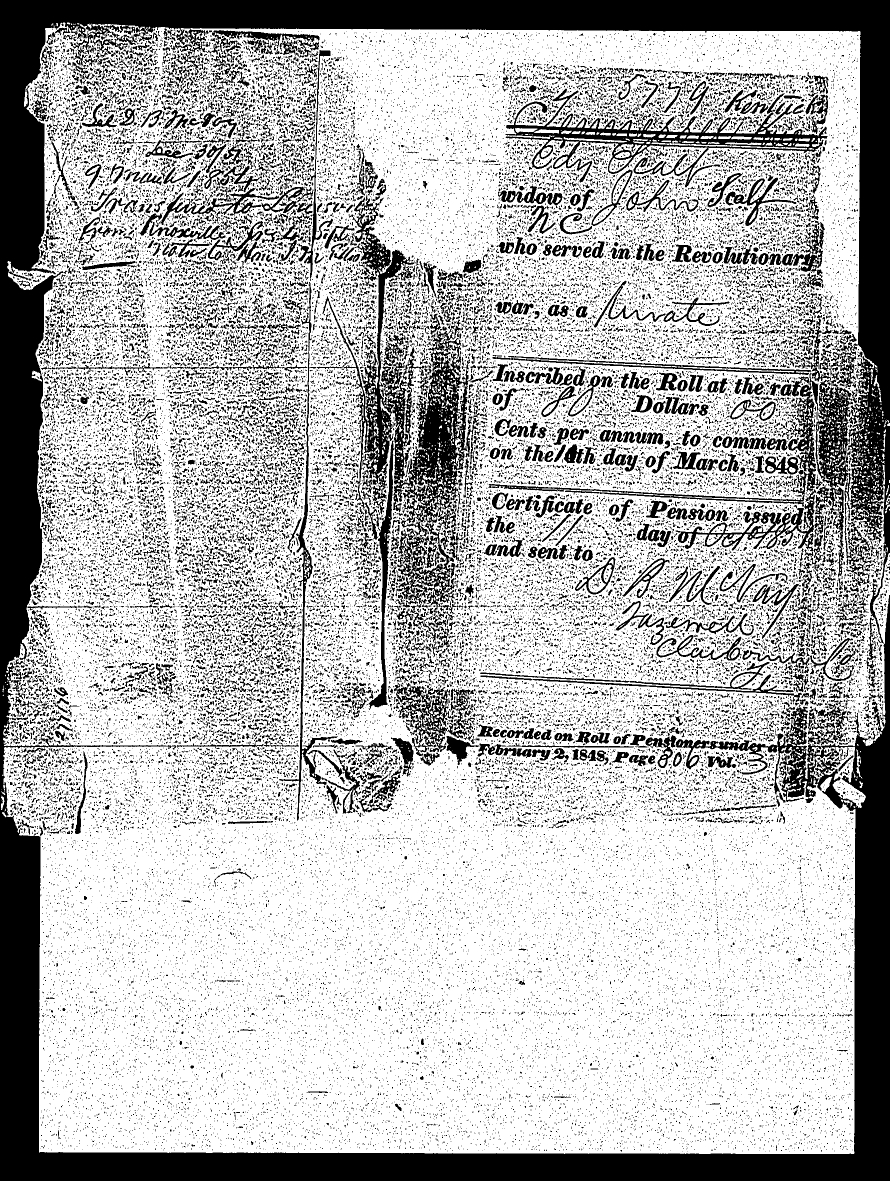 Dec 30/51
9 March 1854
Transferred to Louisvil
from Knoxville Ten. Sept
Notn to Hon.
27176
5779 Kentuck
Tennessee
Edy Scalf
widow of John Scalf
N C
who served in the Revolutionary
war, as a Private
Inscribed on the Roll at the rate
of 80 Dollars 00
Cents per annum, to commence
on the 4th day of March, 1848.
Certificate of Pension issued
the 11 day of Oct 1851.
and sent to
D. B. McVay
Tazewell
Claiborne Co
Te
Recorded on Roll of Pensioners under act
February 2, 1848, Page 306 Vol. 3